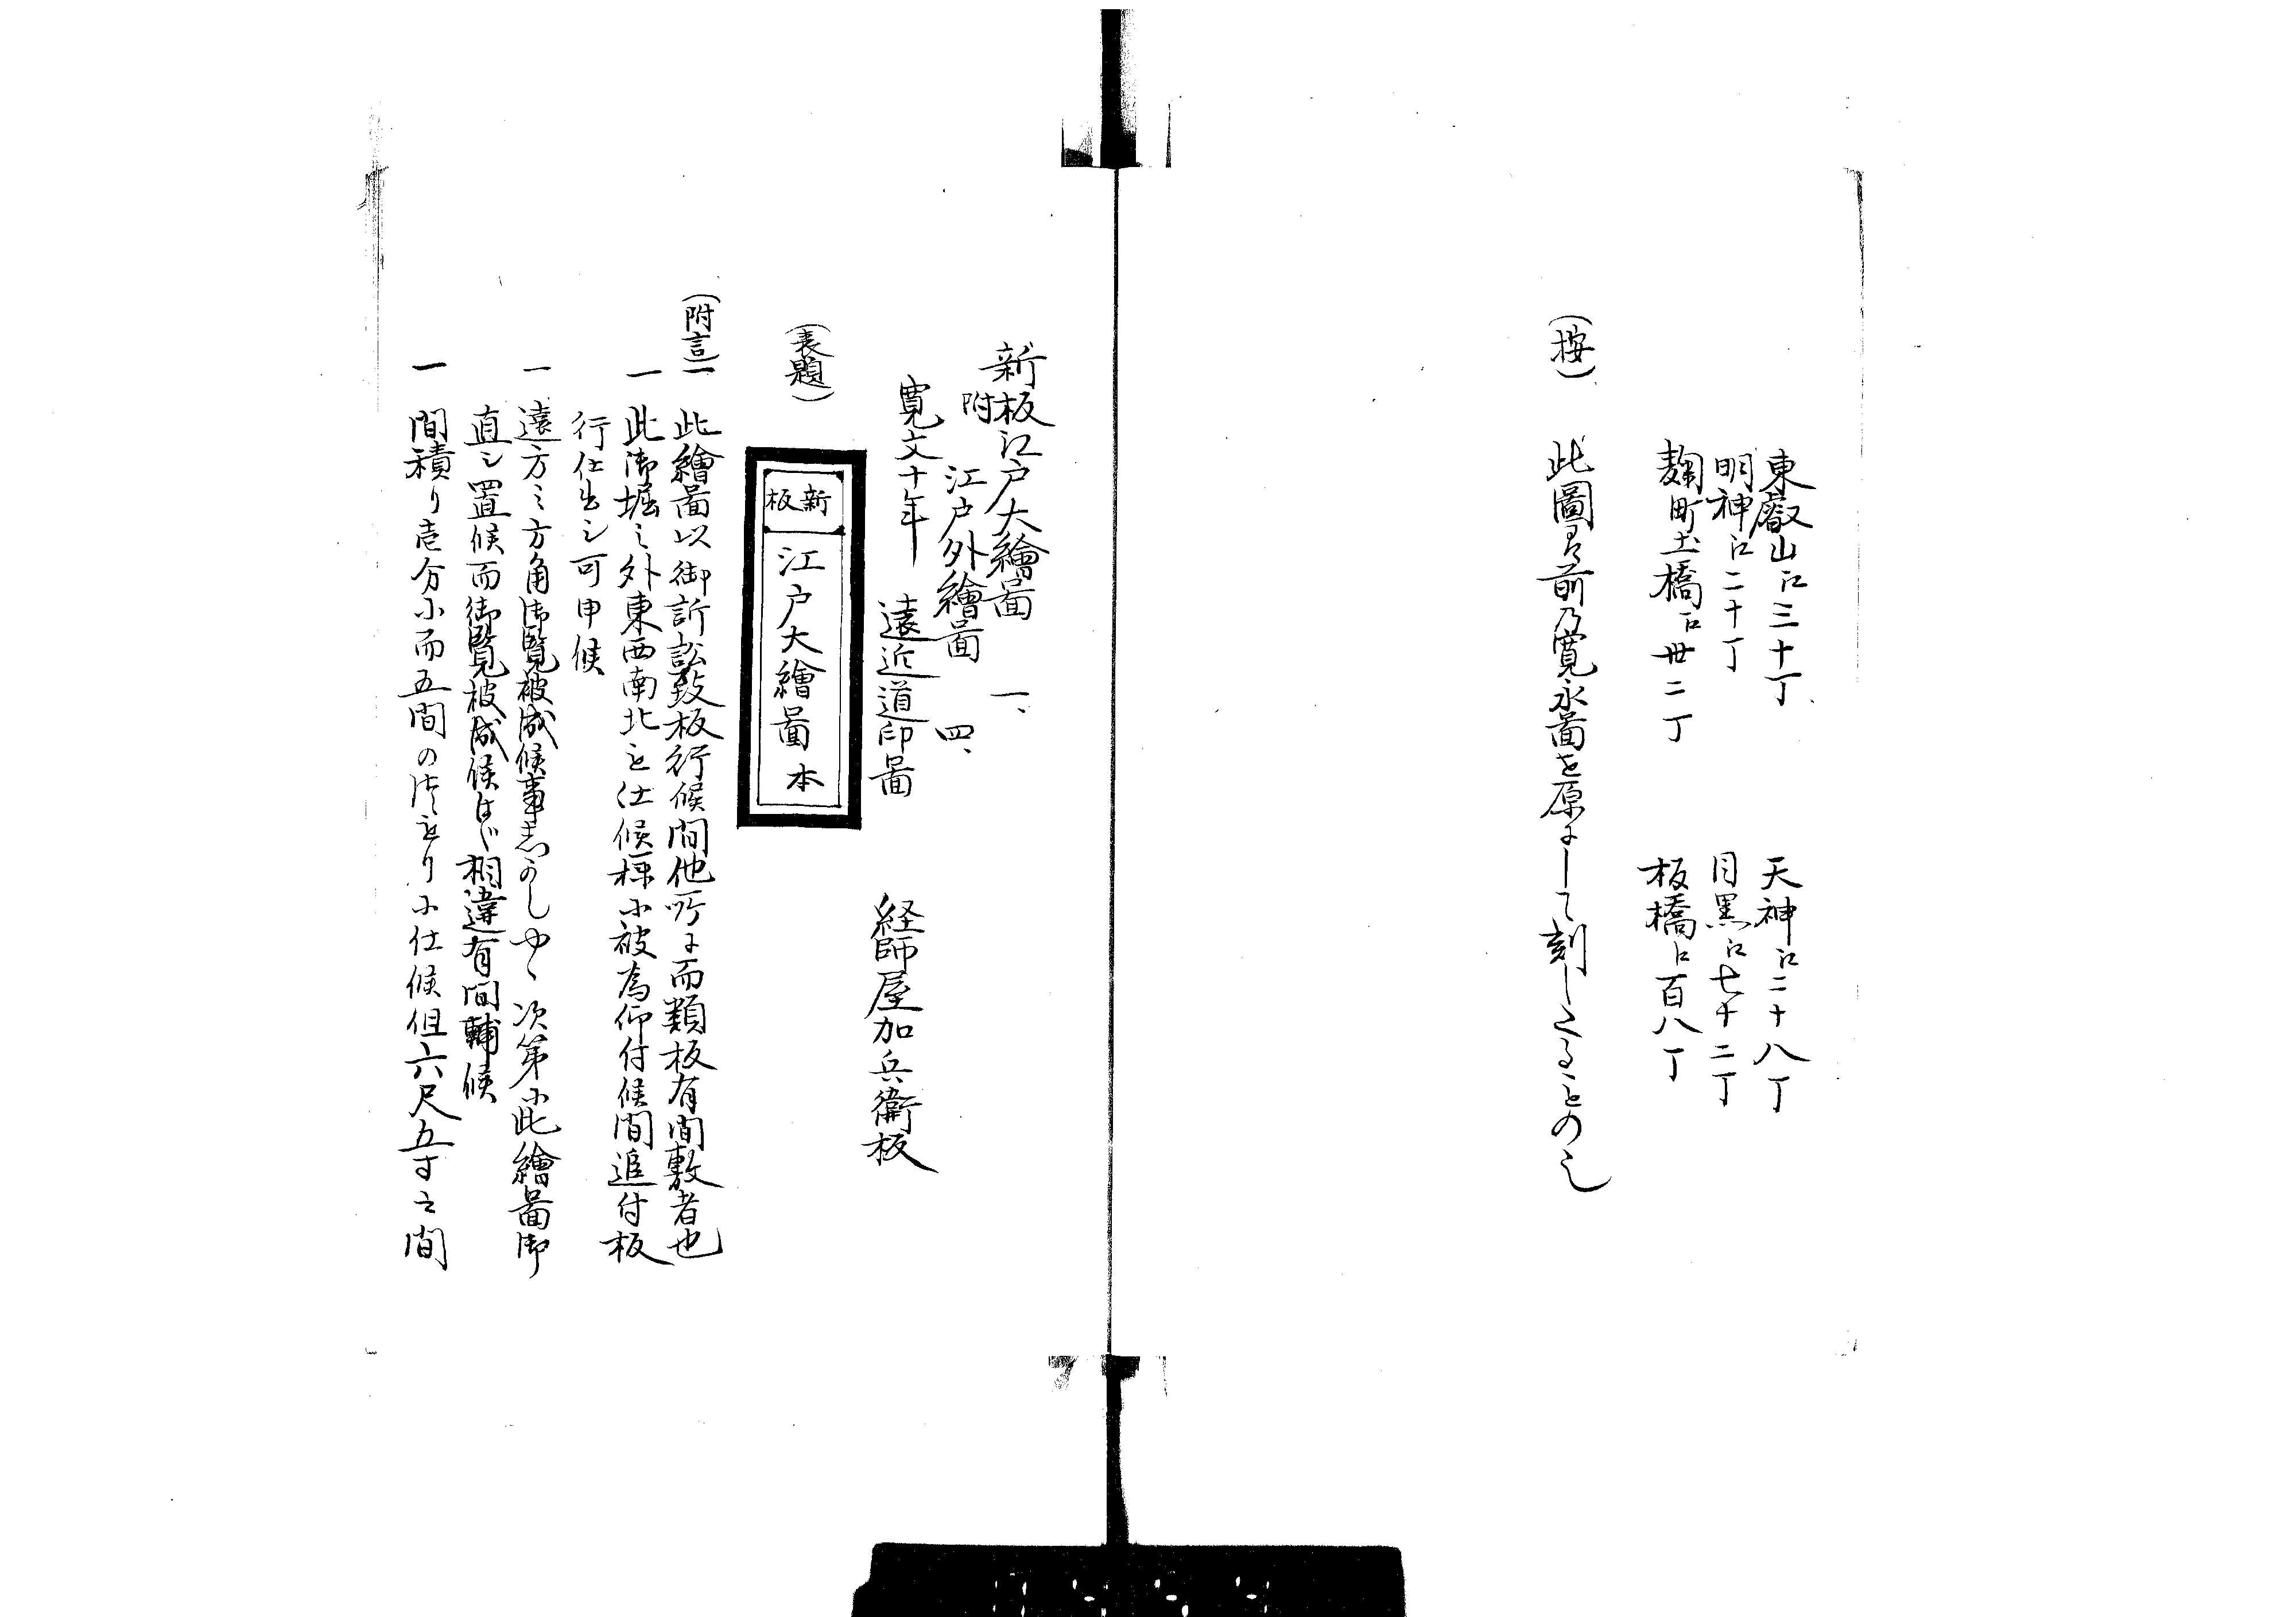 東叡山江三十丁　天神江二十八丁
明神江二十丁　目黒江七十二丁
麹町土橋江卅二丁　板橋江百八丁
(按)　此圖ハ前乃寛永圖を原にして刻したるもの也
新板江戸大繪圖　一、
附　江戸外繪圖　四、
寛文十年　遠近道印圖　経師屋加兵衛板
(表題)
新板
江戸大繪圖　本
(附言)一　此繪圖以御訴訟致板行候間他所ニ而類板有間敷者也
一　此御堀之外東西南北も仕候様ニ被為仰付候間追付板
行仕出シ可申候
一　遠方之方角御覧被成候事
次第ニ此繪圖御
直シ置候而御覧被成候はゞ相違有間鋪候
一　間積り壱分ニ而五間のつもりニ仕候但六尺五寸之間